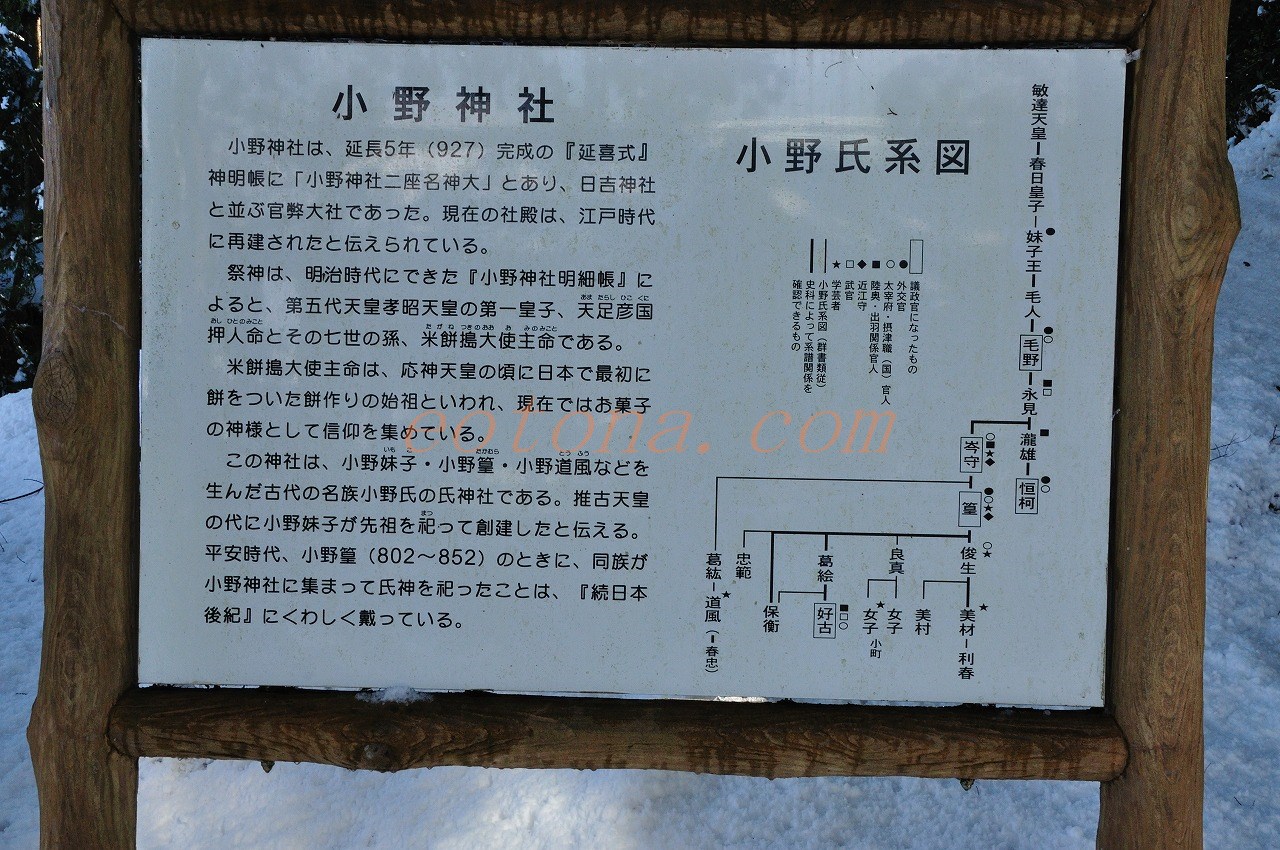 小野神社
小野神社は、延長5年（927）完成の『延喜式』
神明帳に「小野神社二座名神大」とあり、日吉神社
と並ぶ官弊大社であった。現在の社殿は、江戸時代
に再建されたと伝えられている。
祭神は、明治時代にできた『小野神社明細帳』に
よると、第五代天皇孝昭天皇の第一皇子、天足彦国
あま たらし ひこ くに
押人命とその七世の孫、米餅搗大使主命である。
おし ひとのみこと
たがね つきのおお お みのみこと
米餅搗大使主命は、応神天皇の頃に日本で最初に
餅をついた餅作りの始祖といわれ、現在ではお菓子
の神様として信仰を集めている。
この神社は、小野妹子・小野篁・小野道風などを
いも こ
たかむら
とう ふう
生んだ古代の名族小野氏の氏神社である。推古天皇
の代に小野妹子が先祖を祀って創建したと伝える。
まつ
平安時代、小野篁（802～852）のときに、同族が
小野神社に集まって氏神を祀ったことは、『続日本
後紀』にくわしく戴っている。
小野氏系図
議政官になったもの
●外交官
○太宰府・摂津職（国）官人
■陸奥・出羽関係官人
◆近江守
□武官
★学芸者
小野氏系図（群書類従）
史料によって系譜関係を
確認できるもの
敏達天皇ー春日皇子ー妹子王ー毛人ー毛野ー永見
●
●○
■□
瀧雄ー恒柯
■
●○
岑守
○■★◆
篁
●○★◆
俊生
○★
良真
葛絵
忠範
葛絃ー道風（ー春忠）
★
保衡
好古
■□○
女子 小町
★
女子
美村
美材ー利春
★
eotona.com